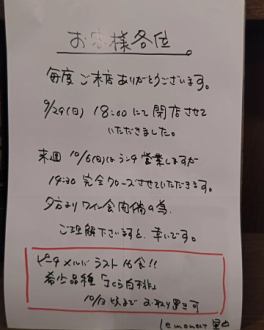 お客様各位。
毎度ご来店ありがとうございます。
9/29(日) 18:00にて閉店させて
いただきました。
来週 10/6(日)はランチ営業しますが
14:30 完全クローズさせていただきます。
夕方よりワイン会開催の為、
ご理解下さいますと、幸いです。
ピーチメルバ ラスト 16食!!
希少品種「さくら白桃」
10/3 以まで お取り置き可
lemoner